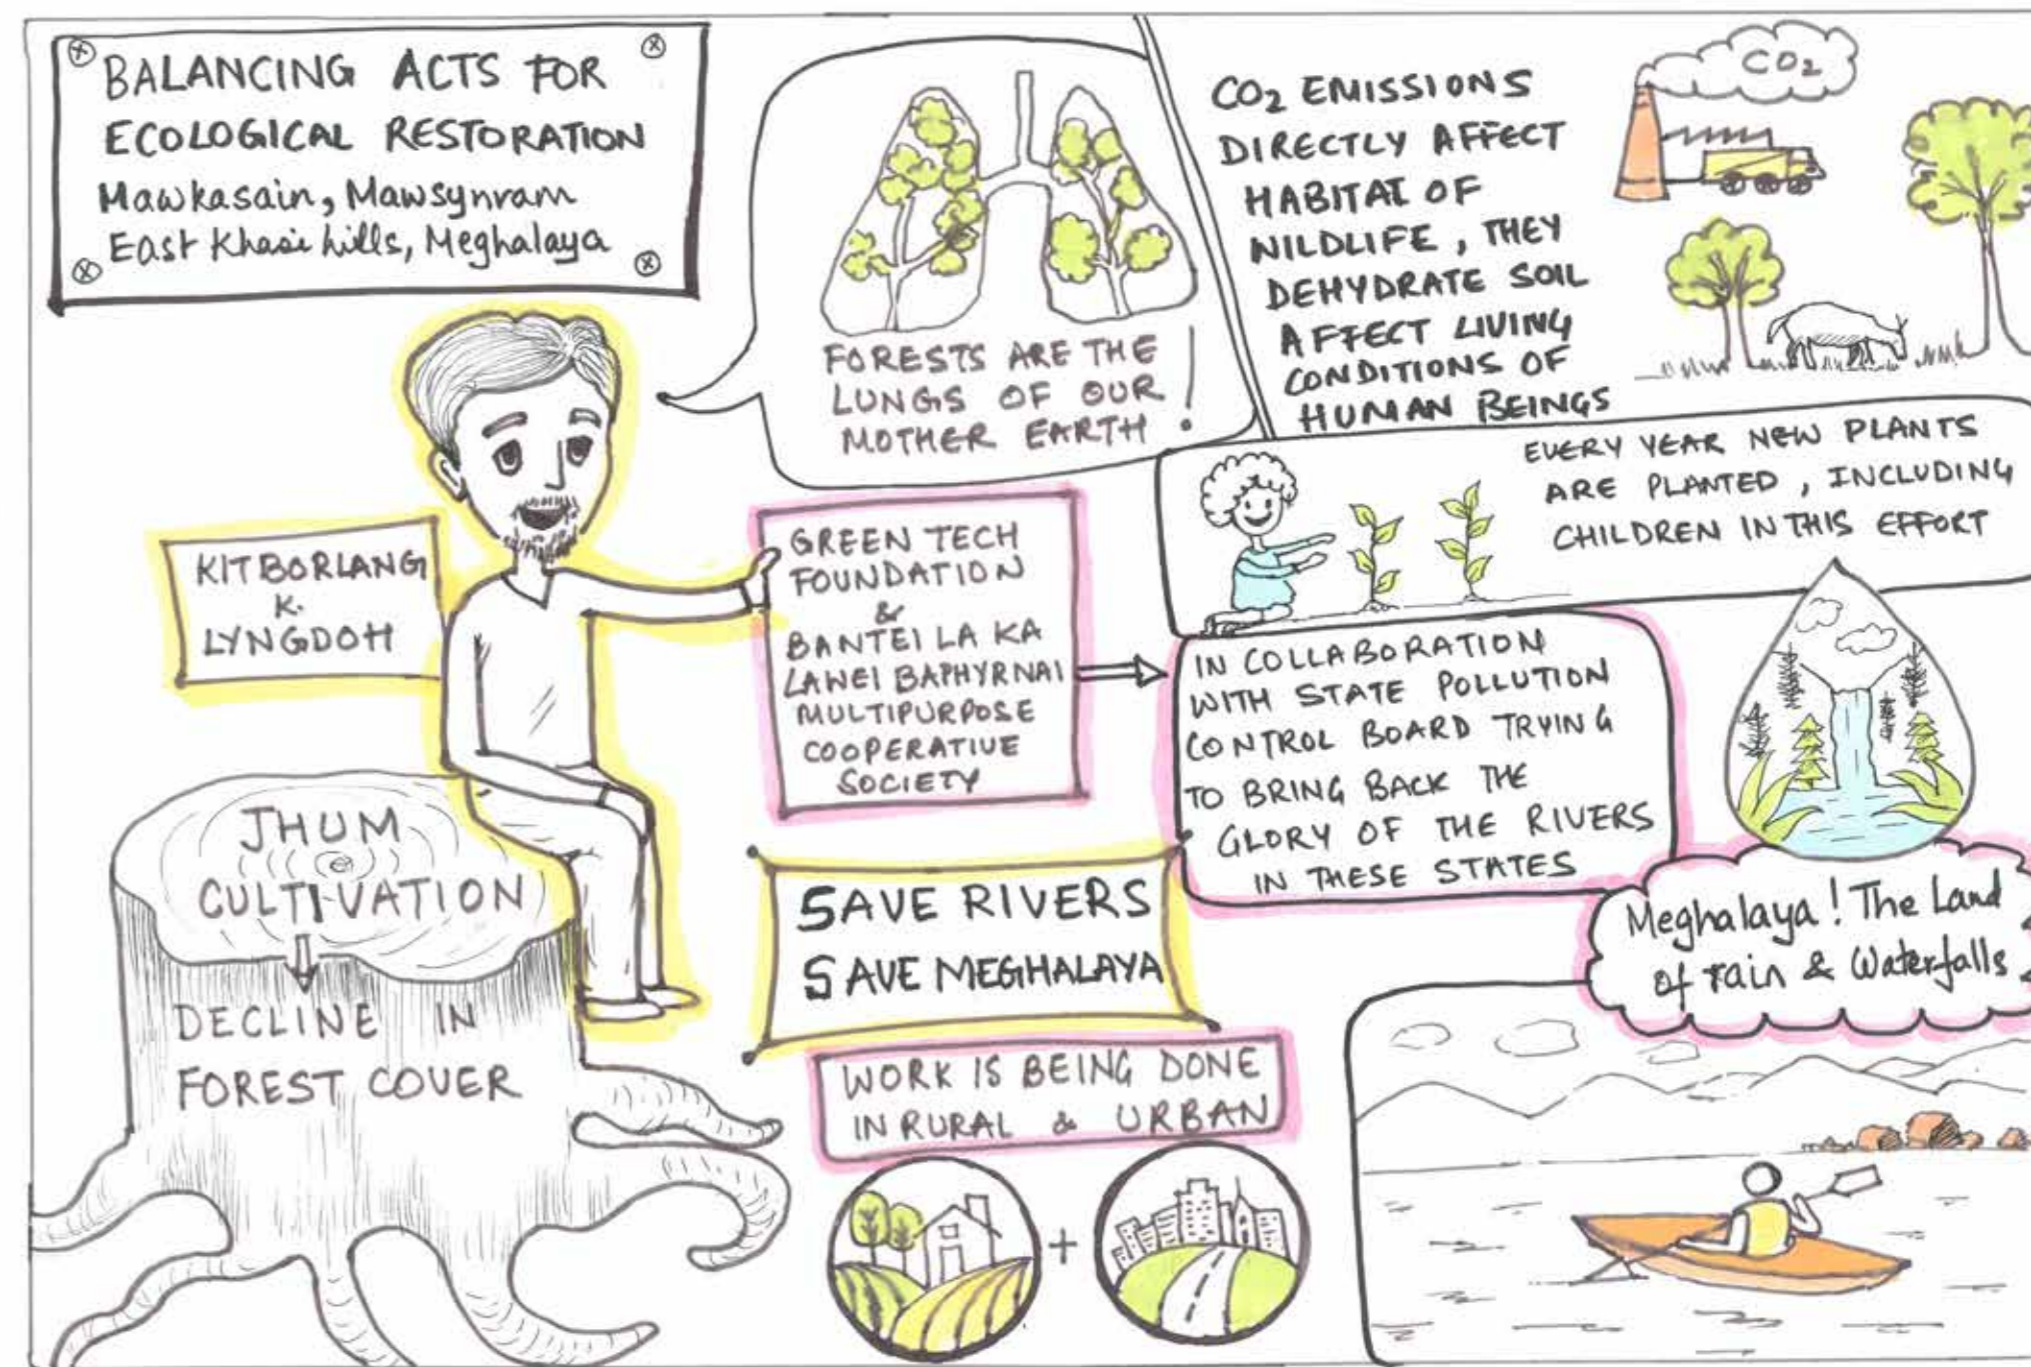 BALANCING ACTS FOR
ECOLOGICAL RESTORATION
Mawkasain, Mawsynram
East Khasi hills, Meghalaya
FORESTS ARE THE
LUNGS OF OUR
MOTHER EARTH !
CO2 EMISSIONS
DIRECTLY AFFECT
HABITAT OF
WILDLIFE, THEY
DEHYDRATE SOIL
AFFECT LIVING
CONDITIONS OF
HUMAN BEINGS
CO2
EVERY YEAR NEW PLANTS
ARE PLANTED, INCLUDING
CHILDREN IN THIS EFFORT
KITBORLANG
K.
LYNGDOH
GREEN TECH
FOUNDATION
&
BANTEI LA KA
LAWEI BAPHYRNAI
MULTIPURPOSE
COOPERATIVE
SOCIETY
IN COLLABORATION
WITH STATE POLLUTION
CONTROL BOARD TRYING
TO BRING BACK THE
GLORY OF THE RIVERS
IN THESE STATES
JHUM
CULTIVATION
DECLINE IN
FOREST COVER
SAVE RIVERS
SAVE MEGHALAYA
Meghalaya! The Land
of rain & Waterfalls
WORK IS BEING DONE
IN RURAL & URBAN
+